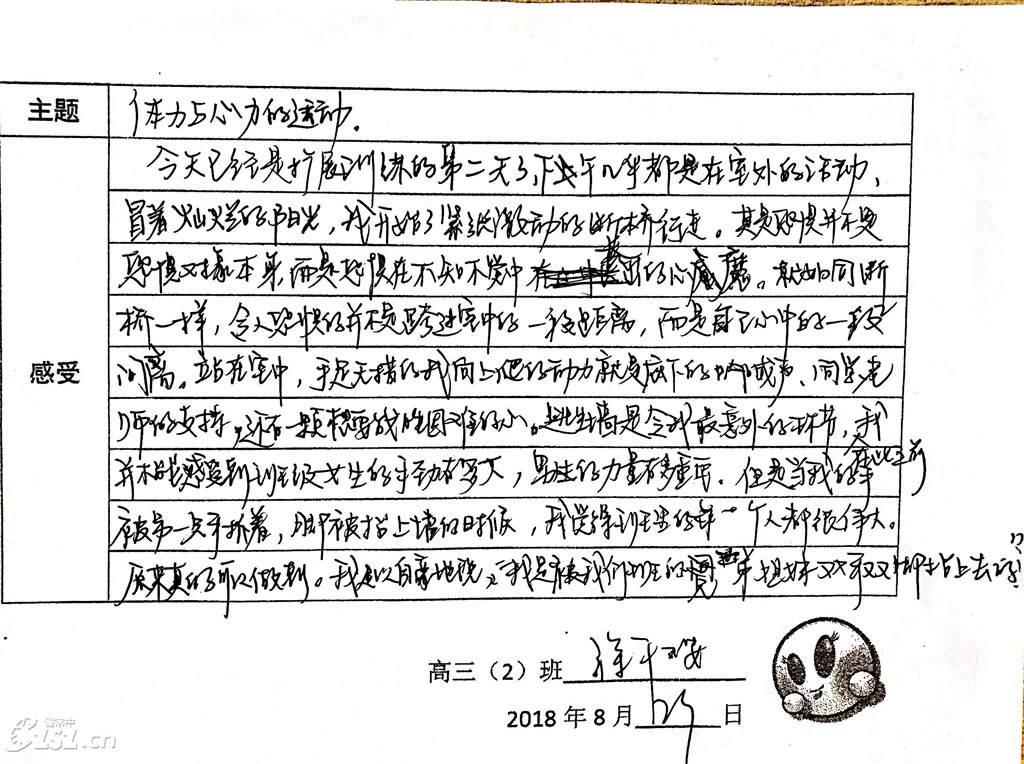 主题 体力与心力的运动.
今天已经是扩展训练的第二天了,下午几乎都是在室外的活动,
冒着灿烂的阳光,我开始了紧张激动的断桥行走。其实恐惧并不是
恐惧对象本身而是恐惧在不知不觉中 的心魔。就如同断
桥一样,令人恐惧的并不是跨过空中的一段距离,而是自己心中的一段
感受 距离。站在空中,手足无措的我向上爬的动力就是底下的呐喊声、同学老
师的支持,还有一颗想要战胜困难的心。逃生墙是令我最意外的环节,我
并不能感受到班级女生的手劲有多大,男生的力量有多重要。但是当我的
被第一只手抓着,脚被抬上墙的时候,我觉得班里的每一个人都很伟大。
原来真的可以做到。我可以自豪地说:"我是被我们班的 弟姐妹双手双脚抬上去的!"
高三(2)班
2018年8月 日
首京中
61S1.cn